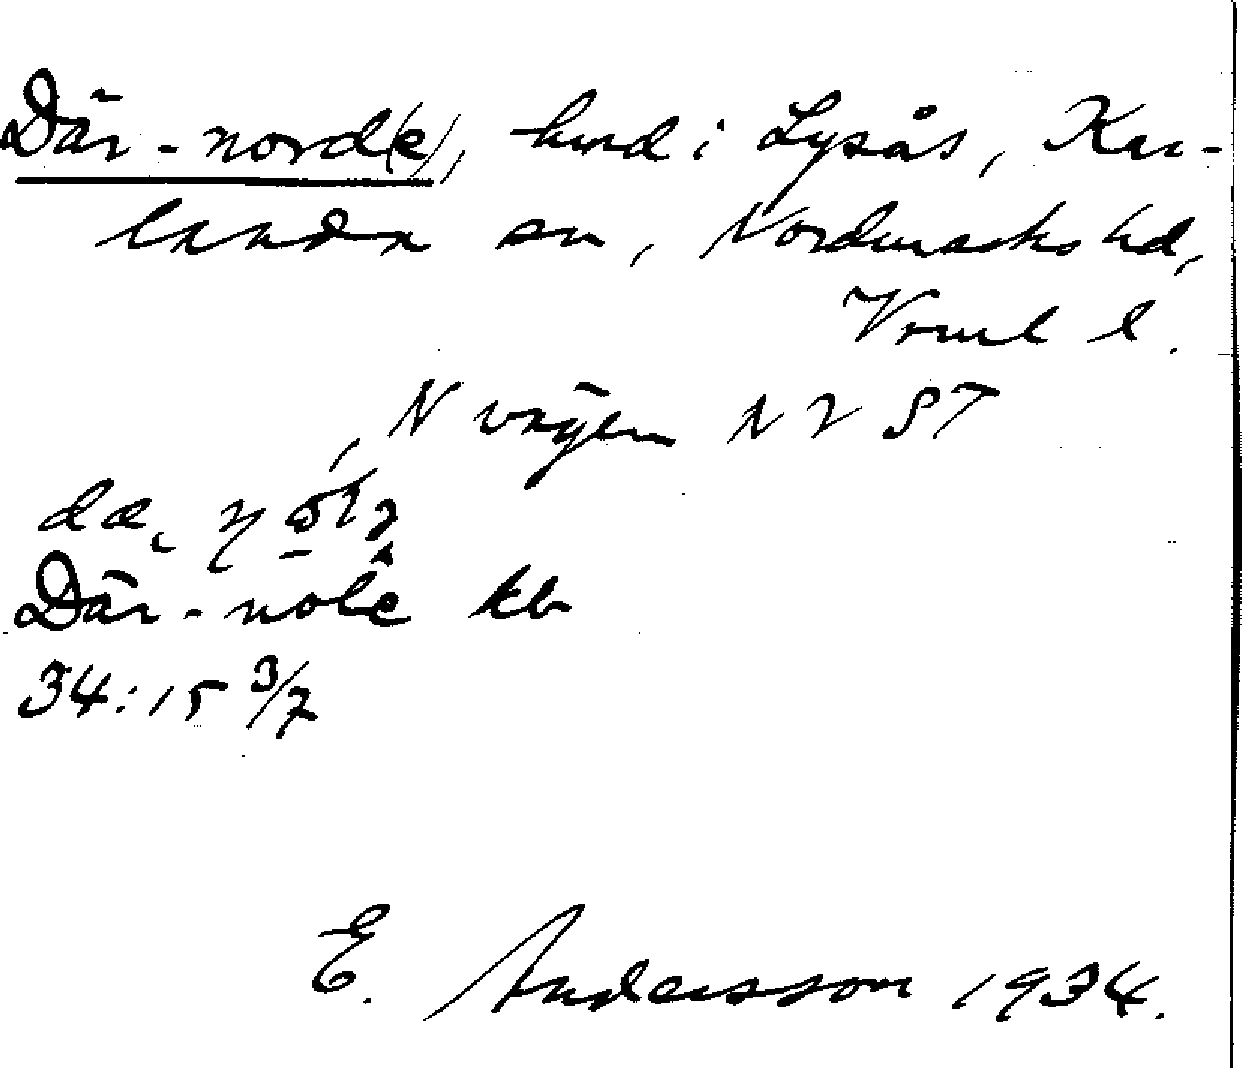 Där-nord(e), hmd i Lysås, Kar-
landa sn, Nordmarks hd,
Vrml l.
, N vägen N 2 ST
Där-nole kb
34:15 3/7
E. Andersson 1934.